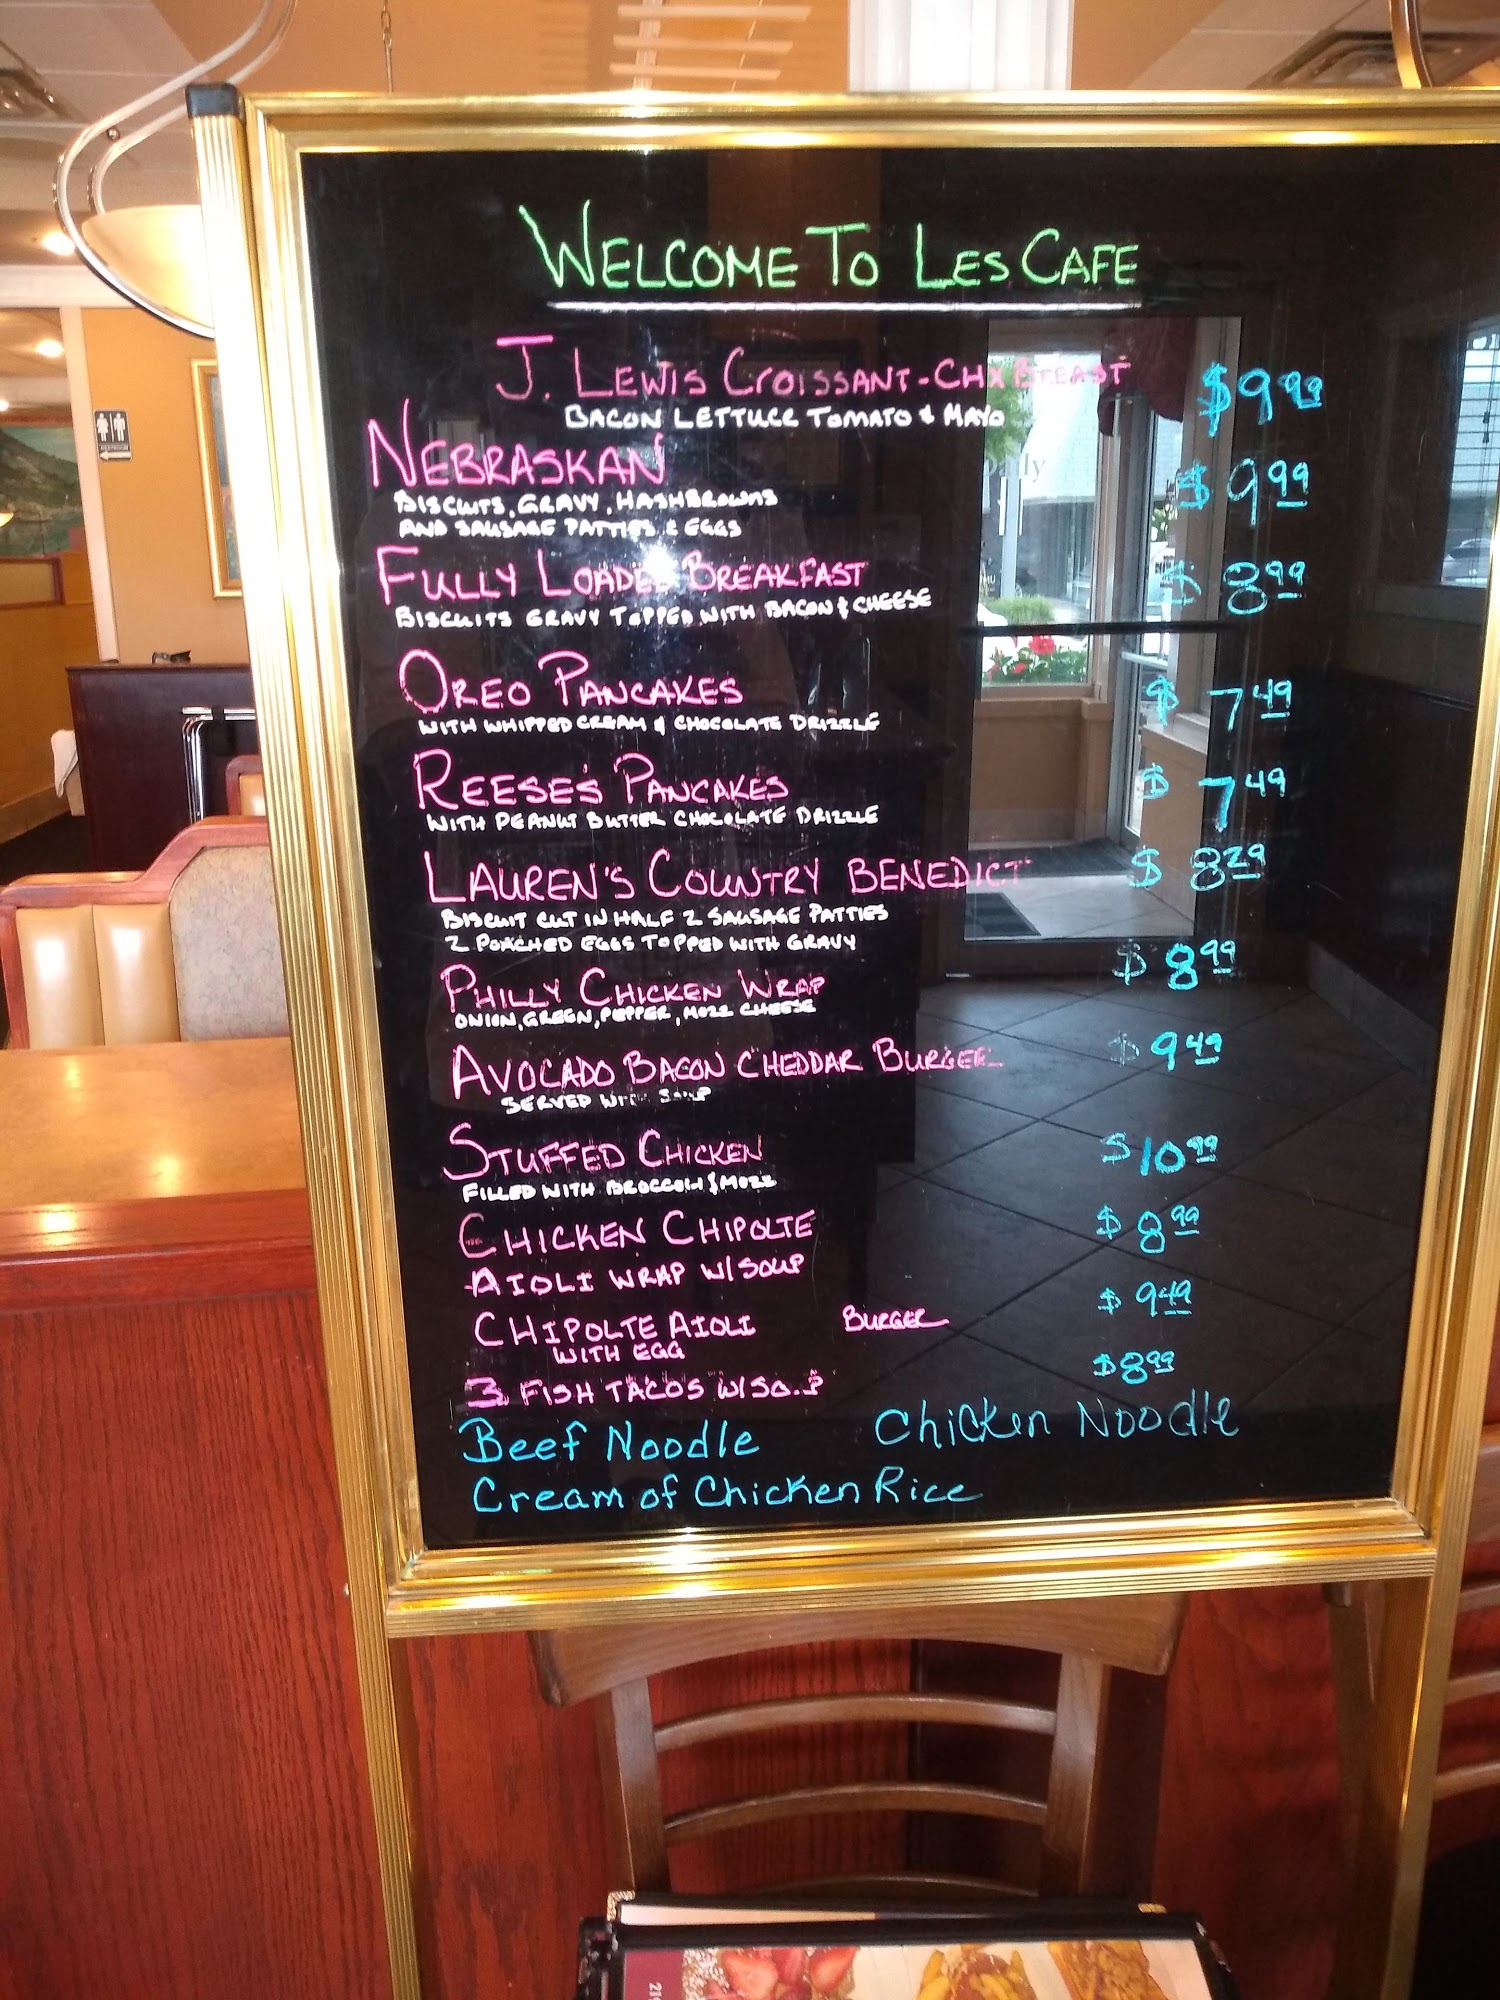 WELCOME TO LES CAFE
J. LEWIS CROISSANT-CHX BREAST $9.99
BACON LETTUCE TOMATO & MAYO
NEBRASKAN $9.99
BISCUITS, GRAVY, HASHBROWNS
AND SAUSAGE PATTIES & EGGS
FULLY LOADED BREAKFAST $8.99
BISCUITS GRAVY TOPPED WITH BACON & CHEESE
OREO PANCAKES $7.49
WITH WHIPPED CREAM & CHOCOLATE DRIZZLE
REESE'S PANCAKES $7.49
WITH PEANUT BUTTER CHOCOLATE DRIZZLE
LAUREN'S COUNTRY BENEDICT $8.29
BISCUIT CUT IN HALF 2 SAUSAGE PATTIES
2 POACHED EGGS TOPPED WITH GRAVY
PHILLY CHICKEN WRAP $8.99
ONION, GREEN, PEPPER, MOZZ CHEESE
AVOCADO BACON CHEDDAR BURGER $9.49
SERVED WITH SOUP
STUFFED CHICKEN $10.99
FILLED WITH BROCCOLI & MOZZ
CHICKEN CHIPOLTE $8.99
AIOLI WRAP W/SOUP
CHIPOLTE AIOLI BURGER $9.49
WITH EGG
3 FISH TACOS W/SOUP $8.99
Beef Noodle Chicken Noodle
Cream of Chicken Rice